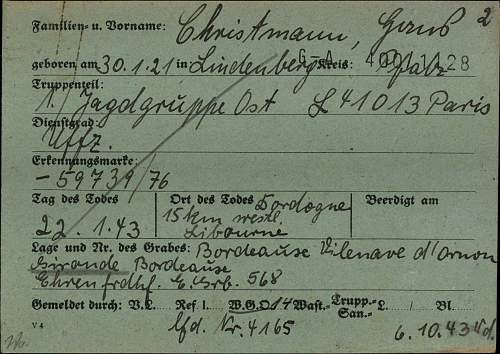 Familien- u. Vorname: Christmann, Hans 2
geboren am 30.1.21 in Lindenberg Kreis: Pfalz
Truppenteil:
1. Jagdgruppe Ost L 41013 Paris
Dienstgrad:
Uffz.
Erkennungsmarke:
- 59739/76
Tag des Todes Ort des Todes Dordogne Beerdigt am
22.1.43 15 km westl. Libourne
Lage und Nr. des Grabes: Bordeause Vilenave d'Ornon
Gironde Bordeause
Ehrenfrdhf. E. Grb. 568
Gemeldet durch: V.L. Ref I. W.G.O 14 Wast.- Trupp.- San.- L. / Bl.
V 4 lfd. Nr. 4165 6.10.43